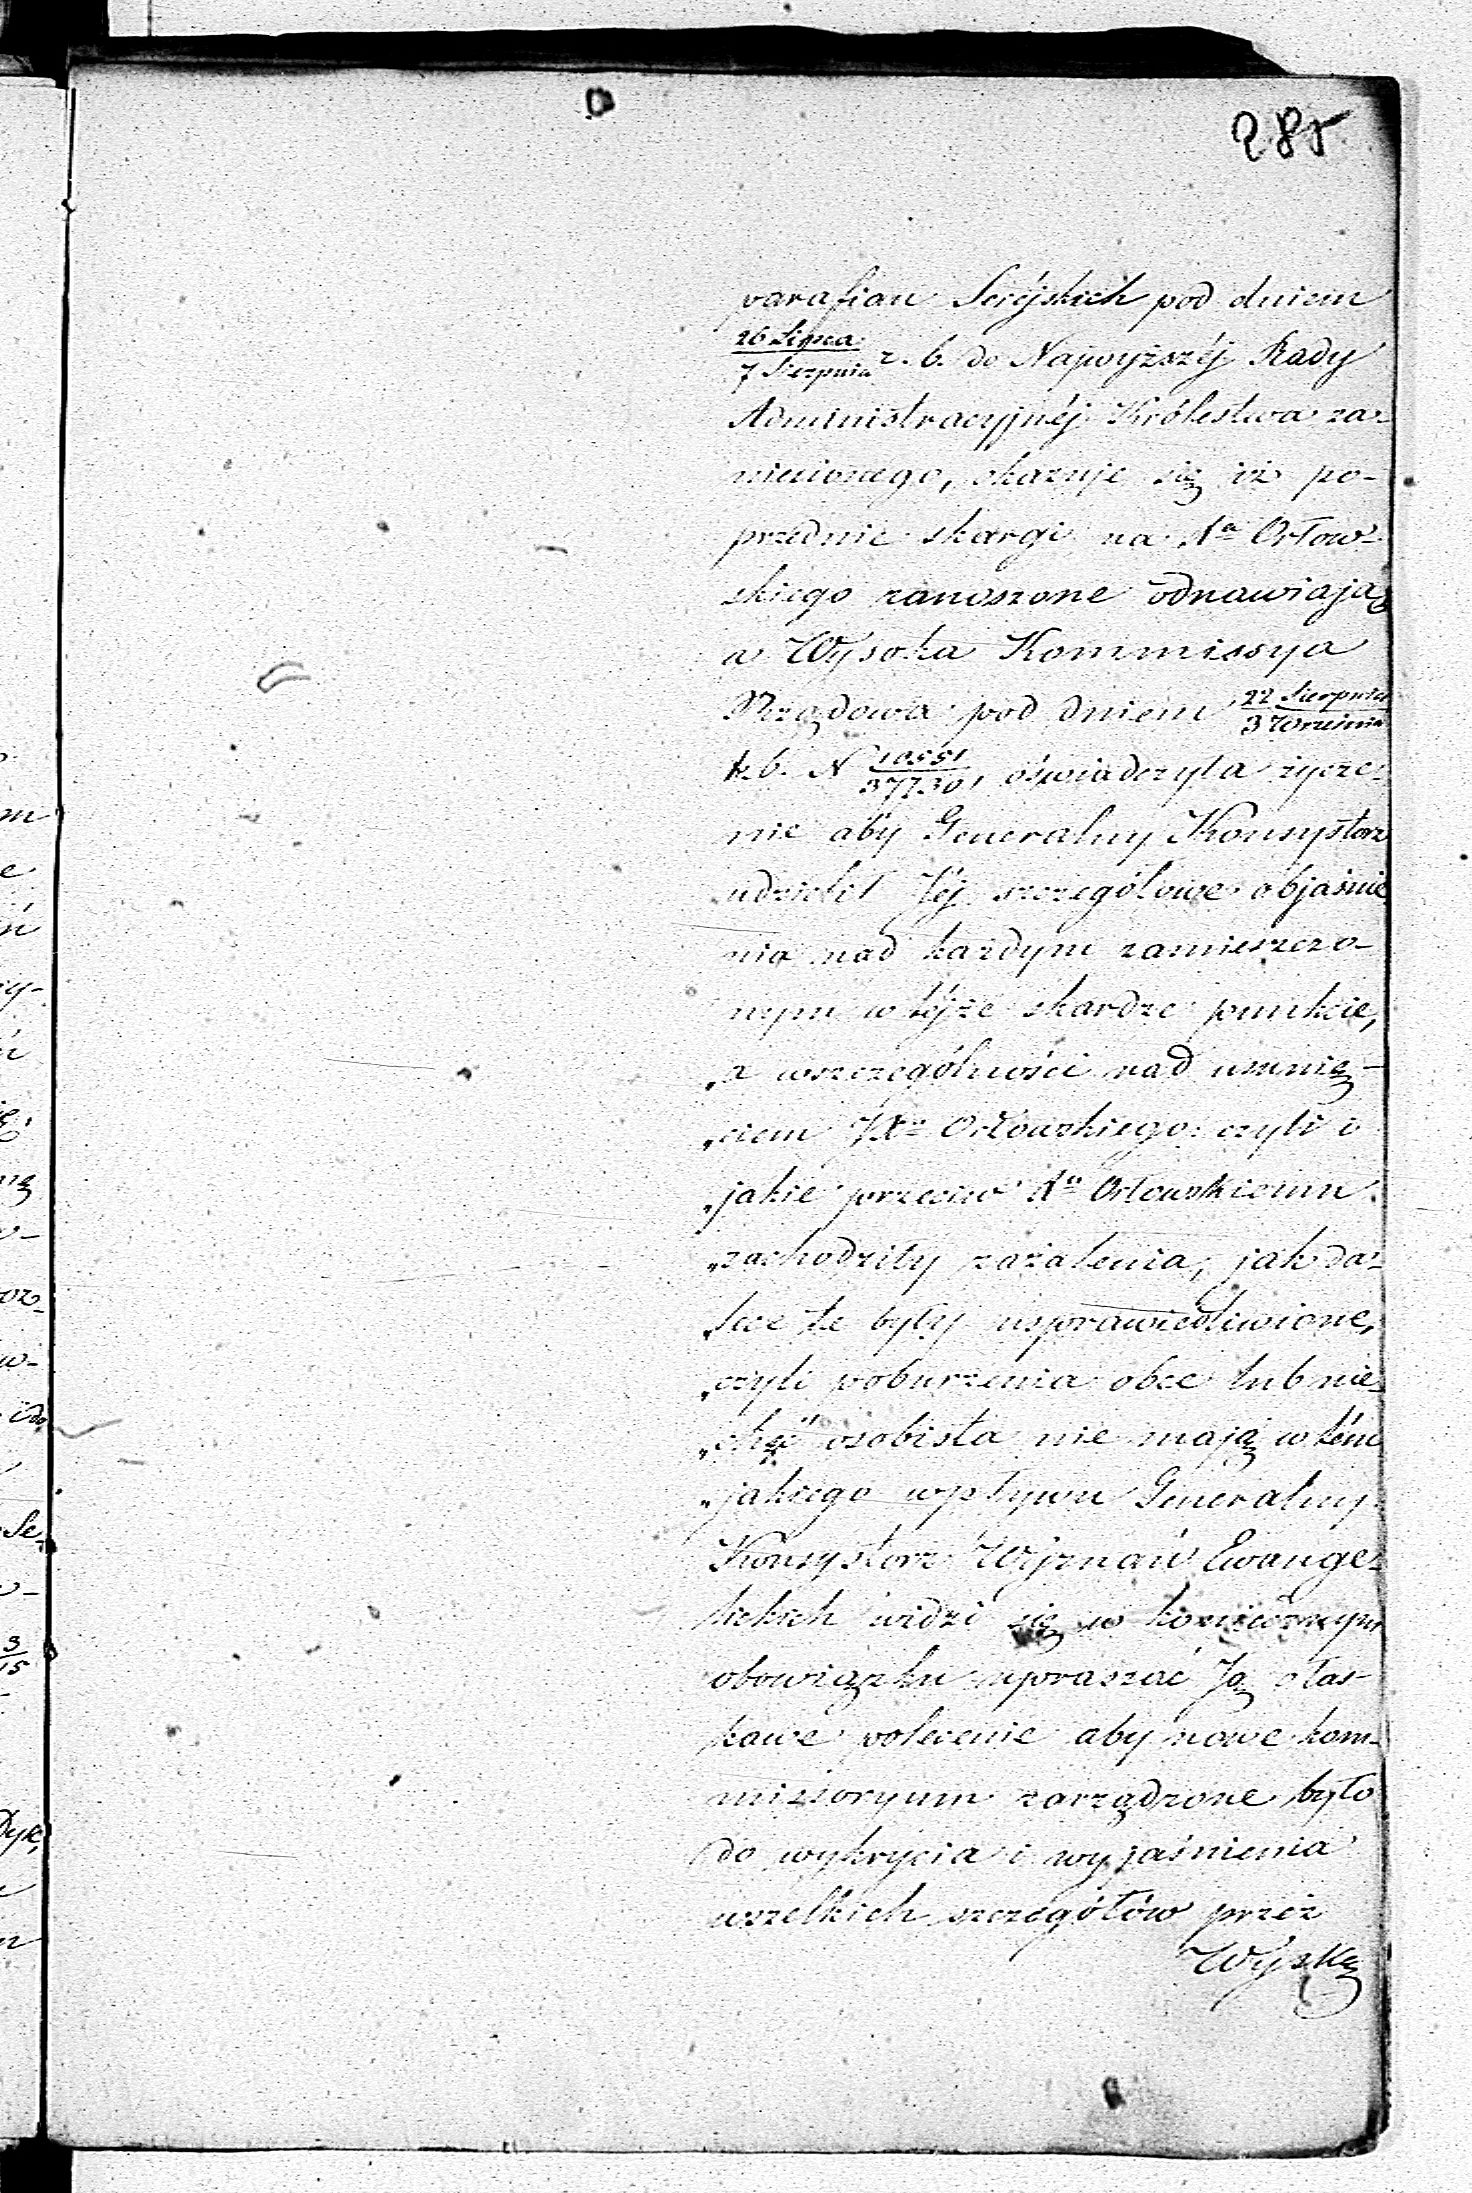 285
parafian Serejskich pod dniem
26 Lipca
7 Sierpnia r. b. do Najwyższéj Rady
Administracyjnéj Królestwa za-
niesionego, okazuje się iż po-
przednie skargi na Xa Orłow-
skiego zanoszone odnawiają
a Wysoka Kommissya
Rządowa pod dniem 22 Sierpnia
3 Września
t. b. N 10551
37730, oświadczyła życze-
nie aby Generalny Konsystorz
udzielił Jéj szczegółowe objaśnie
nia nad każdym zamieszczo-
nym w téjże skardze punkcie,
„a wszczególności nad usunię-
„ciem JXa Orłowskiego: czyli i
„jakie przeciw Xu Orłowskiemu
„zachodziły zażalenia, jak da-
„lece te były usprawiedliwione,
„czyli poburzenia obce lub nie-
„chęć osobista nie mają w tém
„jakiego wpływu Generalny
Konsystorz Wyznań Ewange-
lickich widzi się w koniecznym
obowiązku upraszać Ją o łas-
kawe polecenie aby nowe kom-
missoryum zarządzone było
do wykrycia i wyjaśnienia
wszelkich szczegółów przez